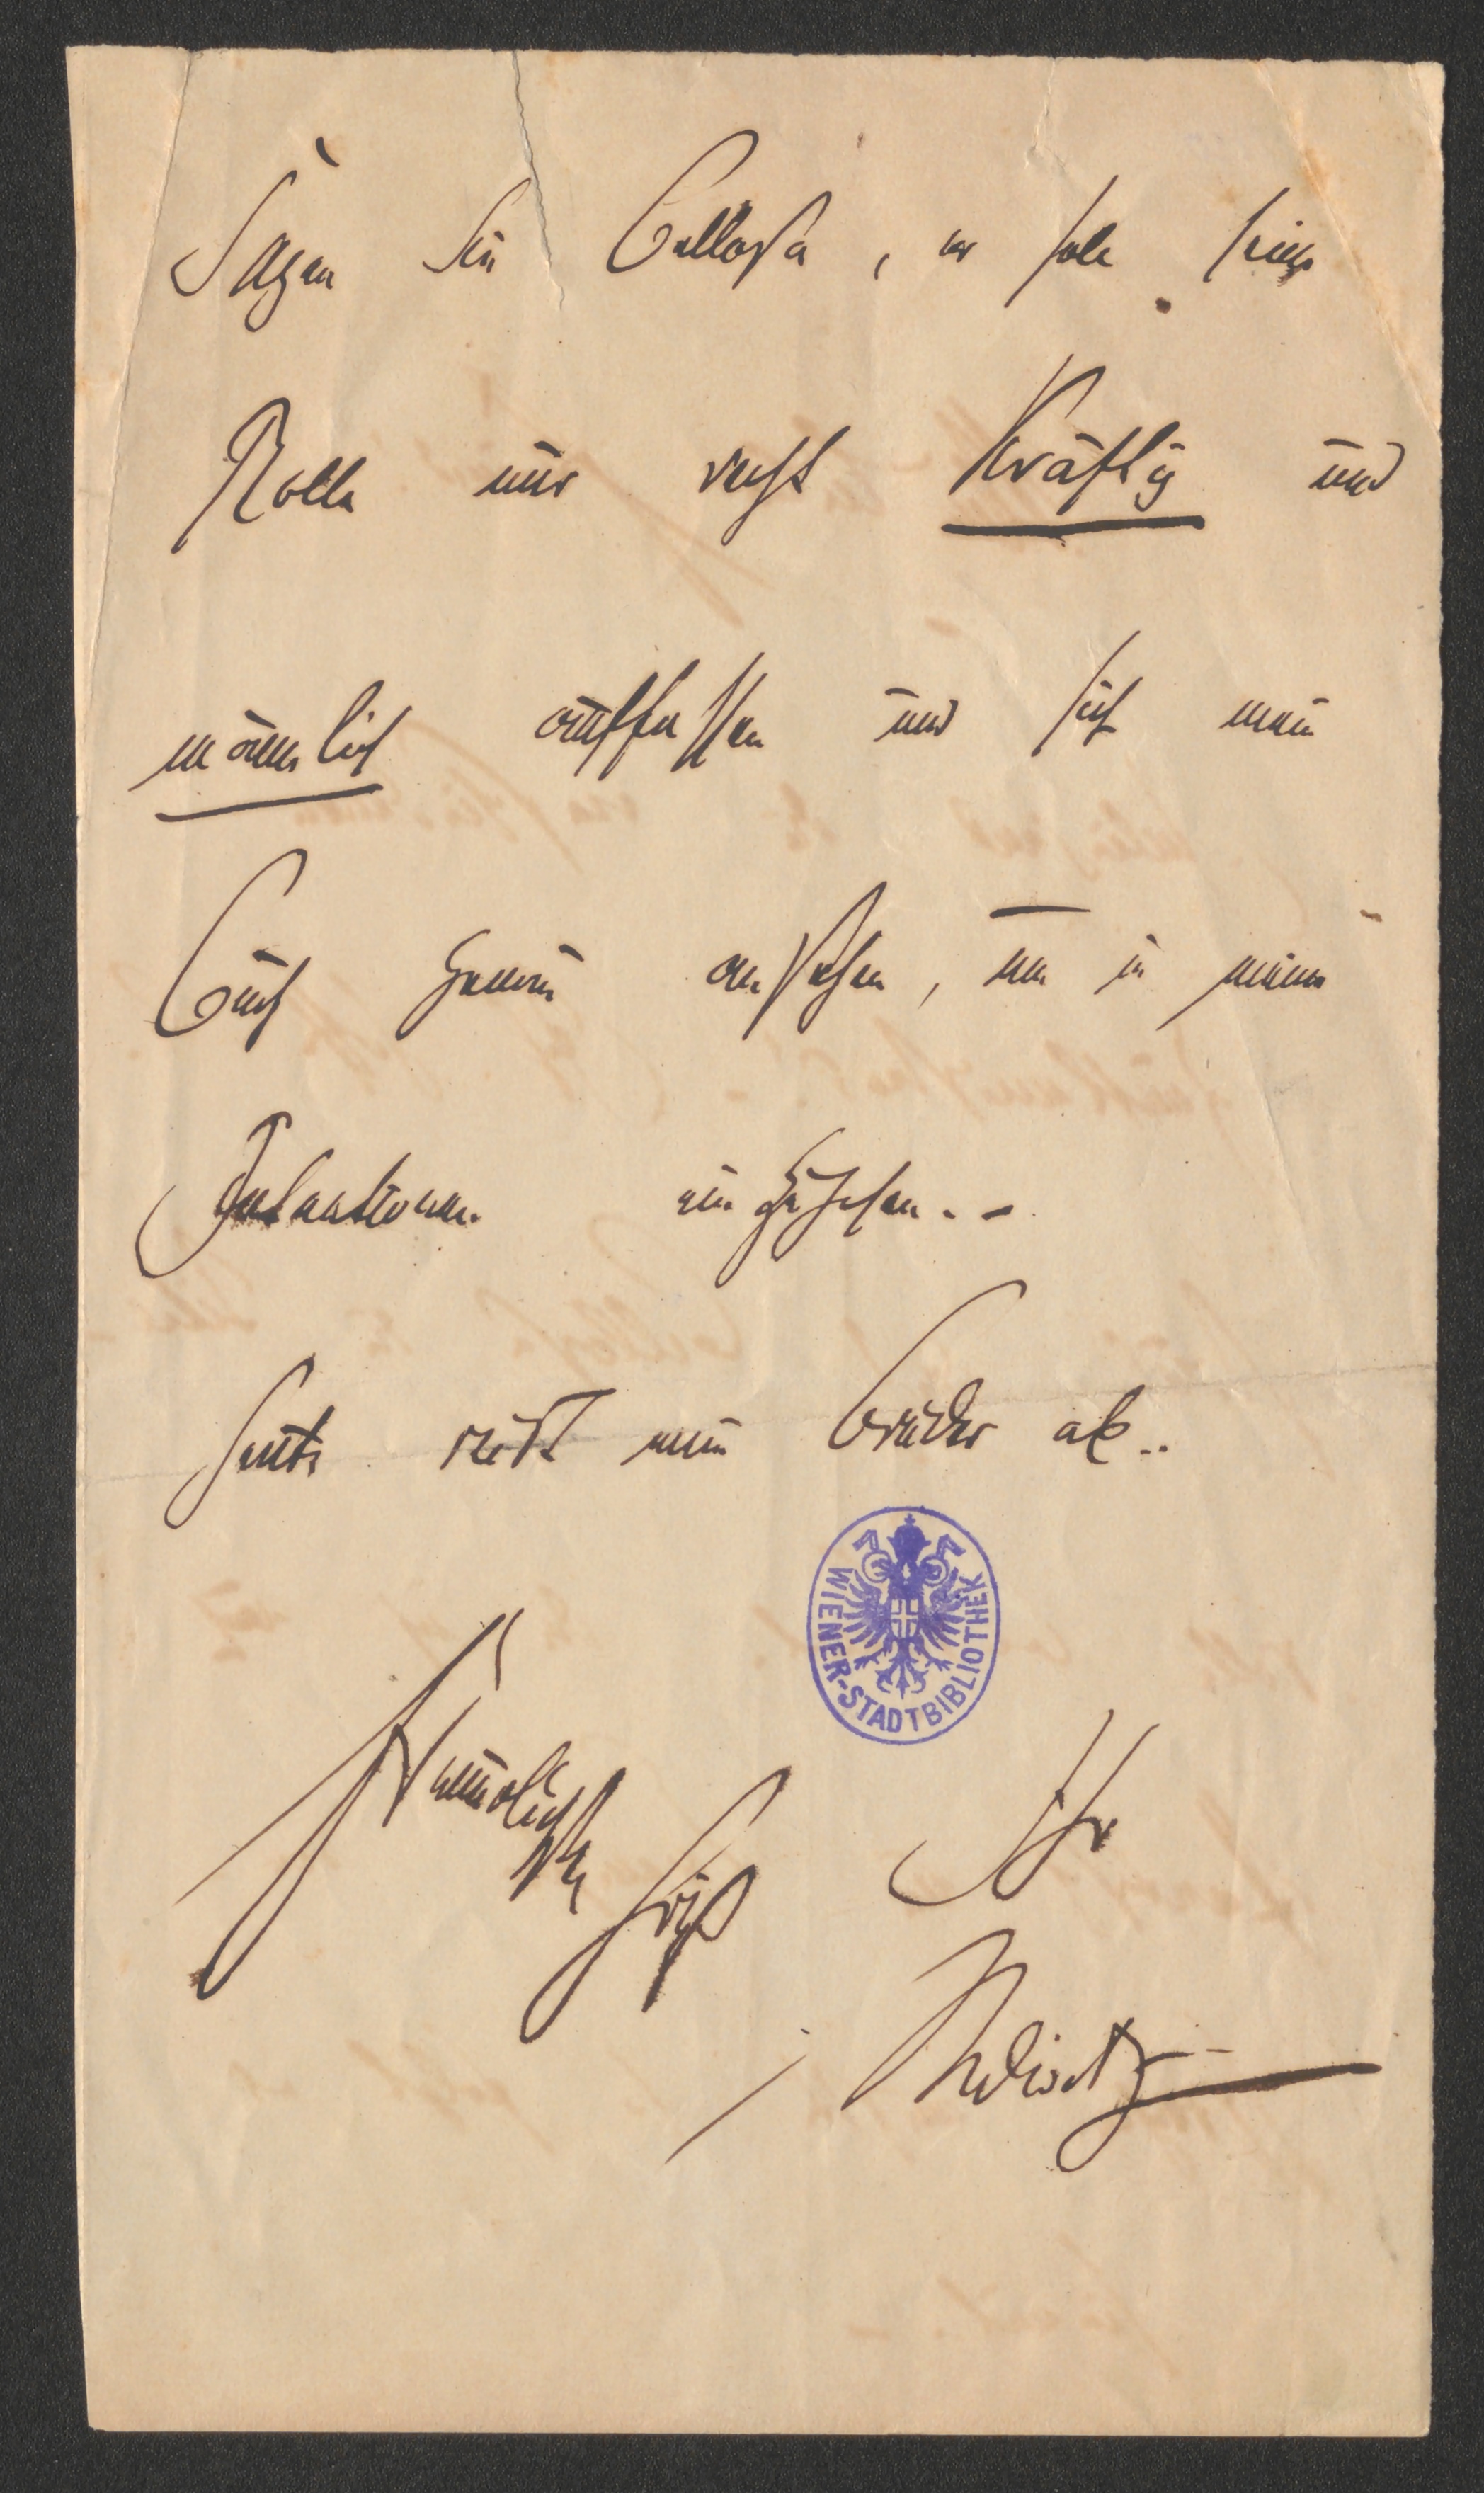 Sagen Sie Ballassa, er solle seine
Rolle nur recht kräftig und
männlich auffassen und sich mein
Buch genau ansehen, um in meine
Intentionen einzugehen. -
Heute reist mein Bruder ab..
WIENER-STADTBIBLIOTHEK
Freundlichsten Gruß
Ihr